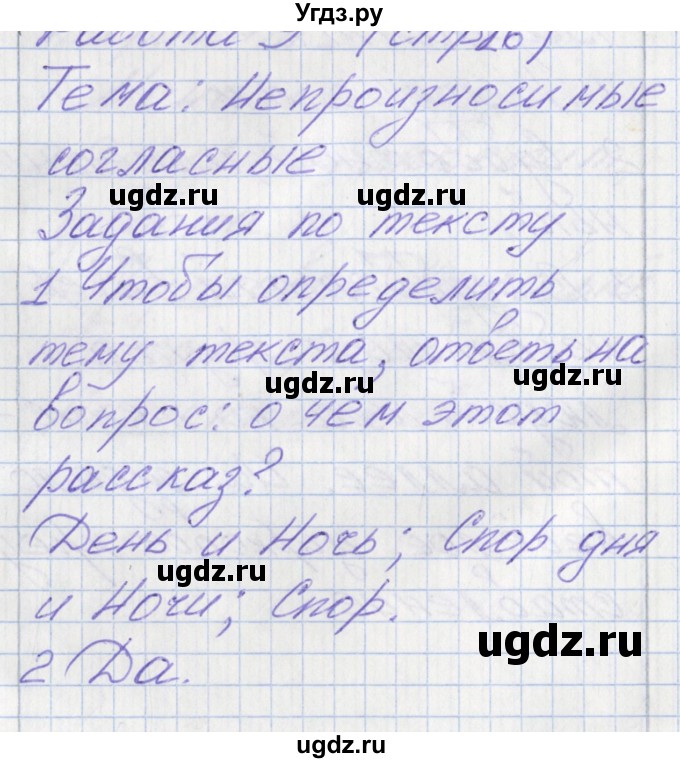 Угдз.ру
Работа 3 (стр26)
Тема: Непроизносимые
согласные
ugdz.ru ugdz.ru
Задания по тексту
1 Чтобы определить
тему текста, ответь на
ugdz.ru ugdz.ru
вопрос: о чём этот
рассказ?
День и Ночь; Спор дня
ugdz.ru
и Ночи; Спор.
ugdz.ru
2 Да.
ugdz.ru